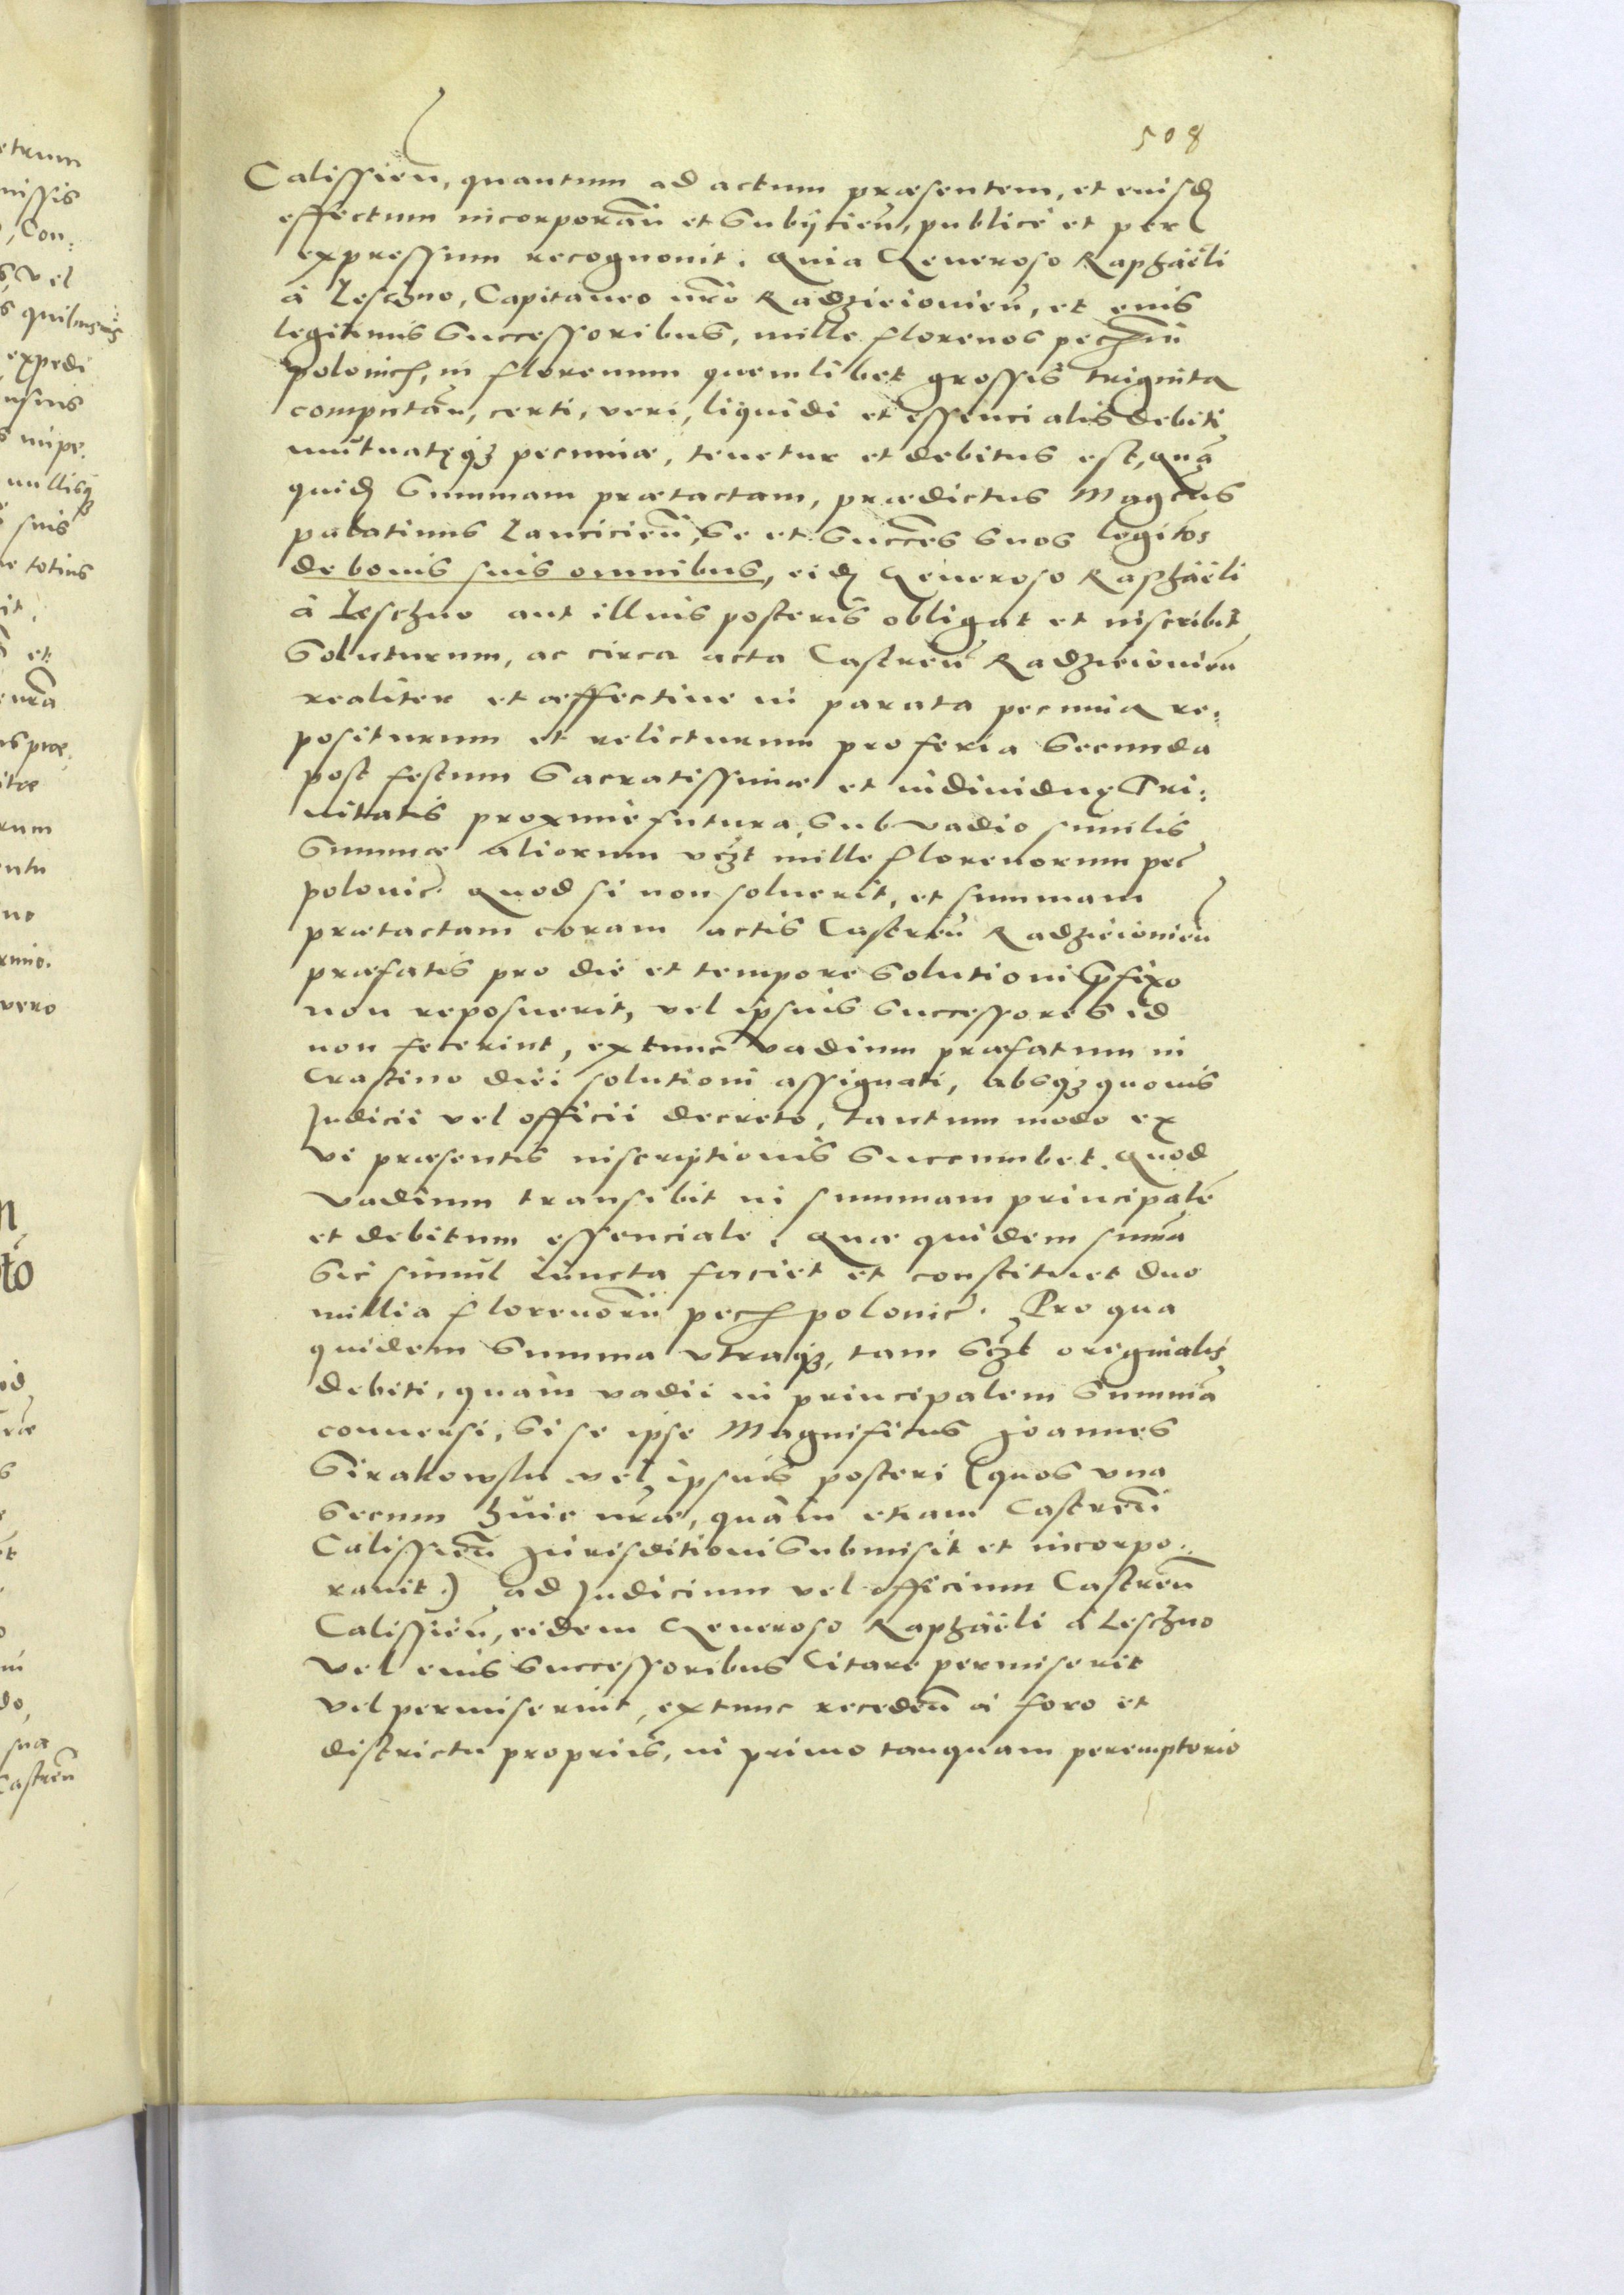 508
Calissien̄, quantum ad actum præsentem, et eiusđ
effectum incorporan̄ et subijcien̄, publice et per
expressum recognouit. Quia Generoso Raphaëli
à Leschno, Capitaneo nr̄o Radzieiouien̄, et eius
legitimis successoribus, mille florenos pec̄
polonic̄, in florenum quemlibet grossis triginta
computan̄, certi, veri, liquidi et essencialis debiti
mutuatęq3 pecuniæ, tenetur et debitus est, quā
quiđ summam prætactam, prædictus Magcus
palatinus Lancicien̄, se et succes̄ suos legitōs
de bonis suis omnibus, eiđ Generoso Raphaëli
à Leschno aut illius posteris obligat et inscribit
soluturum, ac circa acta Castren̄ Radzieiouien̄
realiter et æffectiue in parata pecunia re:
positurum et relicturum pro feria secunda
post festum Sacratissimæ et indiuiduę Tri:
nitatis proxime futura, sub vadio similis
summæ aliorum vc̄zt mille florenorum pec̄
polonic̄. Quod si non soluerit, et summam
prætactam coram actis Castren̄ Radzieiouien̄
præfatis pro die et tempore solutioni p̄fixo
non reposuerit, vel ipsius successores id
non fecerint, extunc vadium præfatum in
Crastino diei solutioni assignati, absq3 quouis
Judicii vel officii decreto, tantum modo ex
vi præsentis inscriptionis succumbet. Quod
vadium transibit in summam principalē
et debitum essenciale. Quæ quidem sum̄a
sic simul iuncta faciet et constituet duo
millia florenorū pec̄ polonic̄. Pro qua
quidem summa vtraq3, tam sc̄zt originalis
debiti, quàm vadii in principalem summā
conuersi, si se ipse Magnificus Joannes
Sirakowski vel ipsius posteri (quos vna
secum huic nr̄æ, quàm etiam Castren̄
Calissien̄ Jurisditioni submisit et incorpo:
rauit) ad Judicium vel officium Castren̄
Calissien̄, eidem Generoso Raphaëli à Leschno
vel eius successoribus Citare permiserit
vel permiserint, extunc receden̄ à foro et
districtu propriis, in primo tanquam peremptorio